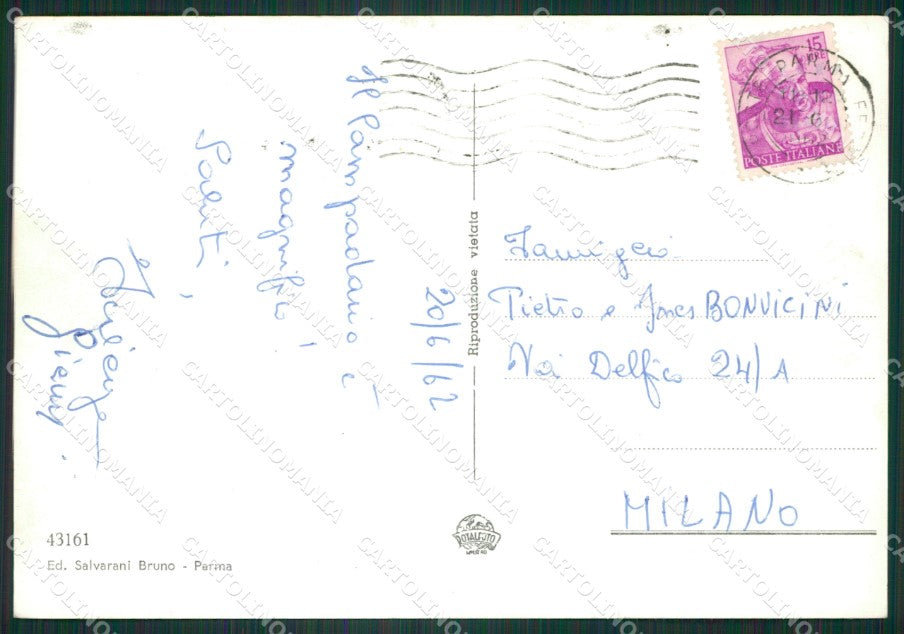 Il lampadario è
magnifico!
Saluti,
20/6/62
Riproduzione vietata
15
LIRE
POSTE ITALIANE
PARMA
21 6
Famiglia
Pietro e Ines BONVICINI
Via Delfico 24/A
MILANO
43161
Ed. Salvarani Bruno - Parma
ROTALFOTO
MILANO
CARTOLINOMANIA